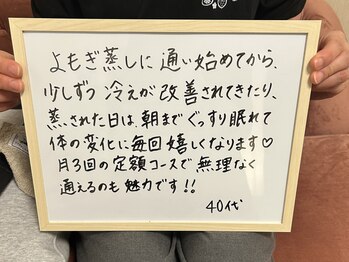 よもぎ蒸しに通い始めてから、
少しずつ冷えが改善されてきたり、
蒸された日は、朝までぐっすり眠れて
体の変化に毎回嬉しくなります♡
月3回の定額コースで無理なく
通えるのも魅力です!!
40代